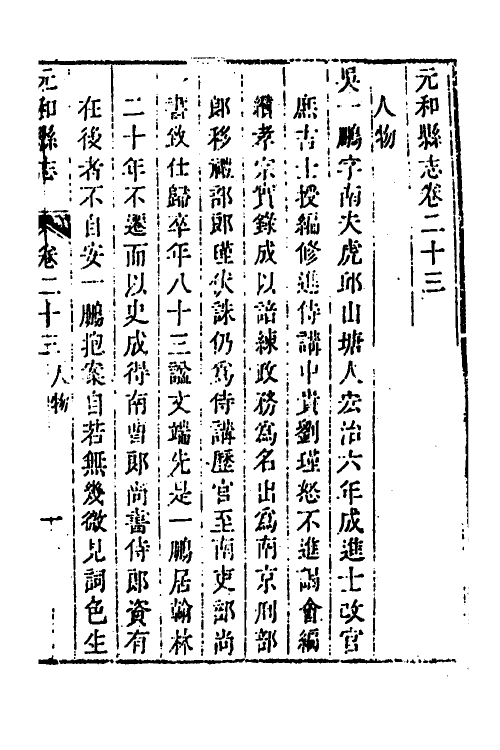 元和縣志卷二十三
人物
吳一鵬字南夫虎邱山塘人宏治六年成進士改官
庶吉士授編修進侍講中貴劉瑾怒不進謁會編
孝宗實錄成以諳練政務爲名出爲南京刑部
郎移禮部郎瑾伏誅仍爲侍講歷官至南吏部尚
書致仕歸卒年八十三諡文端先是一鵬居翰林
二十年不遷而以史成得南曹郎尚書侍郎資有
在後者不自安一鵬抱案自若無幾微見詞色生
元和縣志 卷二十三 人物 一